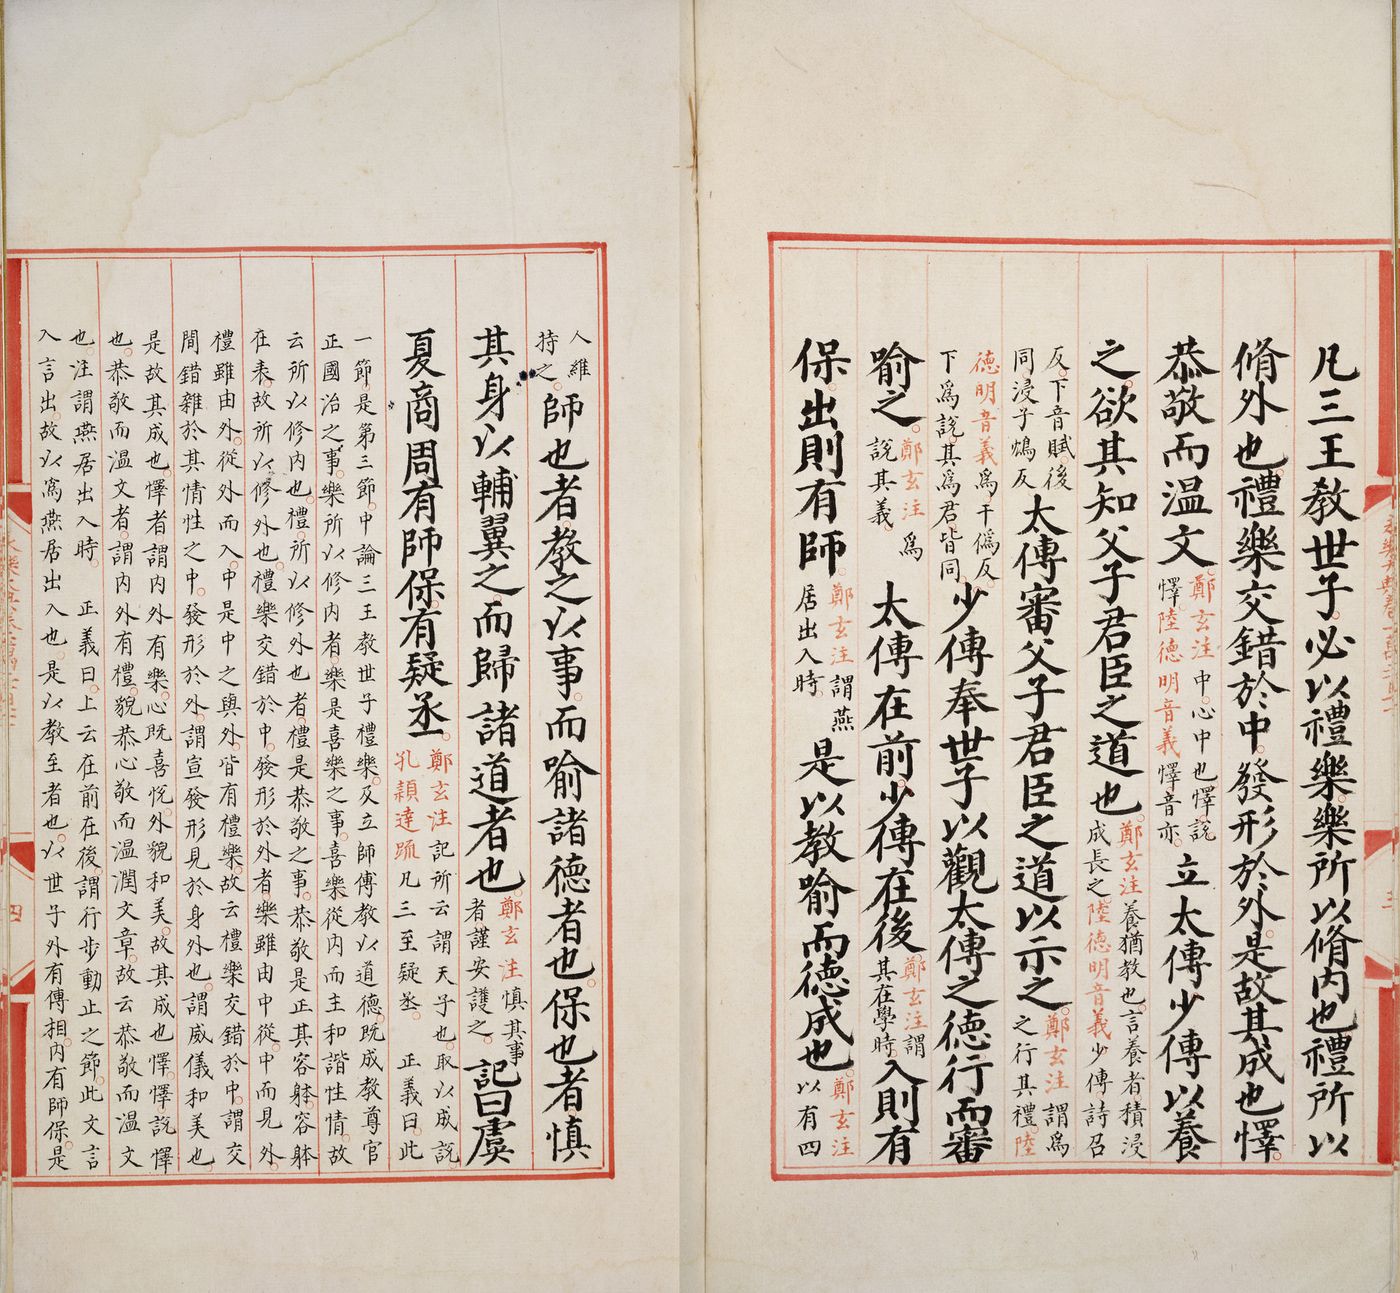 凡三王教世子。必以禮樂。樂所以脩内也。禮所以
脩外也。禮樂交錯於中。發形於外。是故其成也懌。
恭敬而温文。鄭玄注中。心中也。懌。說懌。陸德明音義懌音亦。立太傅少傅以養
之。欲其知父子君臣之道也。鄭玄注養猶教也。言養者積浸成長之。陸德明音義少傅詩召
反。下音賦後同浸子鴆反太傅審父子君臣之道以示之。鄭玄注謂爲之行其禮陸
德明音義爲于僞反。下爲說。其爲君。皆同。少傅奉世子以觀太傅之德行而審
喻之。鄭玄注爲說其義。太傅在前。少傅在後。鄭玄注謂其在學時。入則有
保。出則有師。鄭玄注謂燕居出入時。是以教喻而德成也。鄭玄注以有四
人維持之。師也者。教之以事。而喻諸德者也。保也者。慎
其身以輔翼之。而歸諸道者也。鄭玄注慎其事者謹安護之。記曰虞
夏商周有師保。有疑丞。鄭玄注記所云謂天子也。取以成說孔穎達疏凡三至疑丞。正義曰。此
一節。是第三節。中論三王教世子禮樂。及立師傅教以道德。既成教尊官
正國治之事。樂所以修内者。樂是喜樂之事。喜樂從内而生。和諧性情。故
云所以修内也。禮。所以修外也者。禮是恭敬之事。恭敬是正其容躰。容躰
在表。故所以修外也。禮樂交錯於中。發形於外者。樂雖由中從中而見外。
禮雖由外。從外而入。中是中之與外。皆有禮樂。故云禮樂交錯於中。謂交
間錯雜於其情性之中。發形於外。謂宣發形見於身外也。謂威儀和美也。
是故其成也懌者。謂内外有樂。心既喜悦。外貌和美。故其成也懌。懌。說懌
也。恭敬而温文者。謂内外有禮。貌恭心敬而温潤文章。故云恭敬而温文
也。注謂燕居出入時。正義曰。上云在前在後。謂行步動止之節。此文言
入言出。故以爲燕居出入也。是以教至者也。以世子外有傅相。内有師保。是